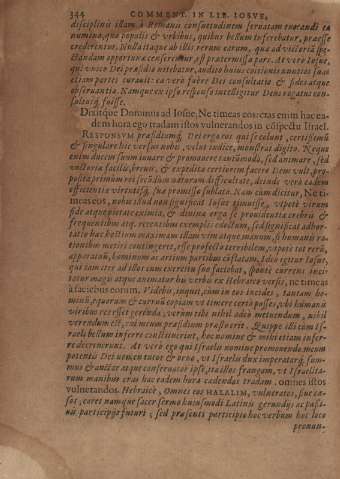 344 COMMENT. IN LIB. IOSVE,
disciplinis illam à Romanis consuetudinem seruatam euocandi ea
numina, quæ populis & vrbibus, quibus bellum inferebatur, præesse
crederentur. Nulla itaque ab illis rerum earum, quæ ad victoriã spe-
ctandam opportunæ censerentur, est prætermissa pars. At vero Iosue,
qui vnico Dei præsidio nitebatur, audito huius coitionis nuntio suas
etiam partes curauit: ea vero fuere illi consulta & fidei atque
obseruantia. Namque ex ipso responso intelligitur Deum rogatum con-
sultumq́; fuisse.
Dixitque Dominus ad Iosue, Ne timeas eos; cras enim hac ea-
dem hora ego tradam istos vulnerandos in cõspectu Israel.
RESPONSVM præsidiumq́; Dei erga eos qui se colunt, certissimũ
& singulare hic versus nobis, velut indice, monstrat digito. Neque
enim ducem suum iuuare & promouere tantũmodo, sed animare, sed
victoria facili, breui, & expedita certiorem facere Dem vult, pro-
posita primùm rei secũdum naturam difficultate, deinde vero eadem
efficientia virtuteq́; sua promissa sublata. Nam cum dicitur, Ne ti-
meas eos, nobis illud non significat Iosue timuisse, vtpote virum
fide atque pietate eximia, & diuinæ erga se prouidentiæ crebris &
frequentibus atq. recentibus exemplis edoctum, sed significat adhor-
tatio hæc hostium maximam illam vim atque manum, si humanis ra-
tionibus metiri contingeret, esse profecto terribilem, vtpote tot rerũ,
apparatuũ, hominum ac artium partibus cõstatam. Ideo igitur Iosue,
qui tam iter ad illos cum exercitu suo faciebat, sponte currens inci-
tatur magis atque animatur his verbis ex Hebraico versis, ne timeas
à faciebus eorum. Videbis, inquit, cùm in eos incides, tantam ho-
minũ, equorum & curruũ copiam vt timere certo posses, vbi humanis
viribus res esset gerenda; verùm tibi nihil adeo metuendum, nihil
verendum est, cui meum præsidium præsto erit. Quippe illi cum Is-
raele bellum inferre constituerint, hoc nomine & mihi etiam infer-
re decreuerunt. At vero ego qui Israelis numine promouendo meum
potentis Dei nomen tutor & orno, vt Israelis dux imperatorq́; sum-
mus & auctor atque conseruator ipse, ita illos frangam, vt Israelita-
rum manibus cras hac eadem hora cædendos tradam. omnes istos
vulnerandos. Hebraicè, Omnes eos HALALIM, vulneratos, siue cæ-
sos; caret namque sacer sermo huiusmodi Latinis gerundijs ac passi-
uis participijs futuri; sed præsenti participio hoc verbum hoc loco
pronun-